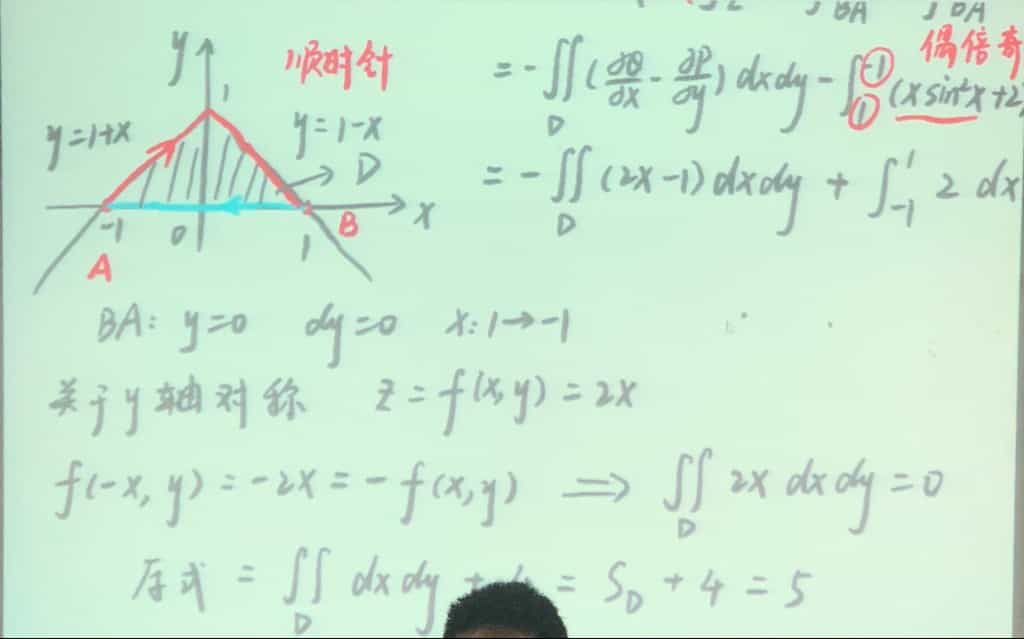 y
顺时针
1
y=1+x
y=1-x
D
-1
0
1
B
x
A
∫BA ∫BA
偶倍奇
= -∬D (∂Q/∂x - ∂P/∂y) dxdy - ∫₁⁻¹ (x sin²x+2
= -∬D (2x-1) dxdy + ∫₋₁¹ 2 dx
BA: y=0 dy=0 x: 1→-1
关于y轴对称 z=f(x,y)=2x
f(-x, y) = -2x = -f(x,y) ⟹ ∬D 2x dxdy = 0
原式 = ∬D dxdy + 4 = S_D + 4 = 5